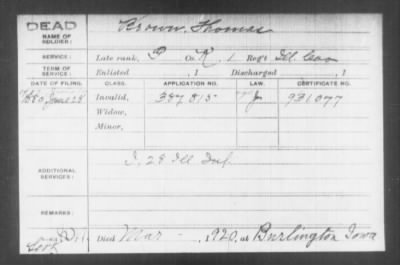 DEAD
NAME OF SOLDIER: Brown, Thomas
SERVICE: Late rank, P Co. K, 1 Reg't Ill Cav
TERM OF SERVICE: Enlisted , 1 Discharged , 1
DATE OF FILING. CLASS. APPLICATION NO. LAW. CERTIFICATE NO.
1880 June 28 Invalid, 387815 J 931077
Widow,
Minor,
ADDITIONAL SERVICES: I. 28 Ill Inf.
REMARKS:
Died Mar - , 1920, at Burlington Iowa